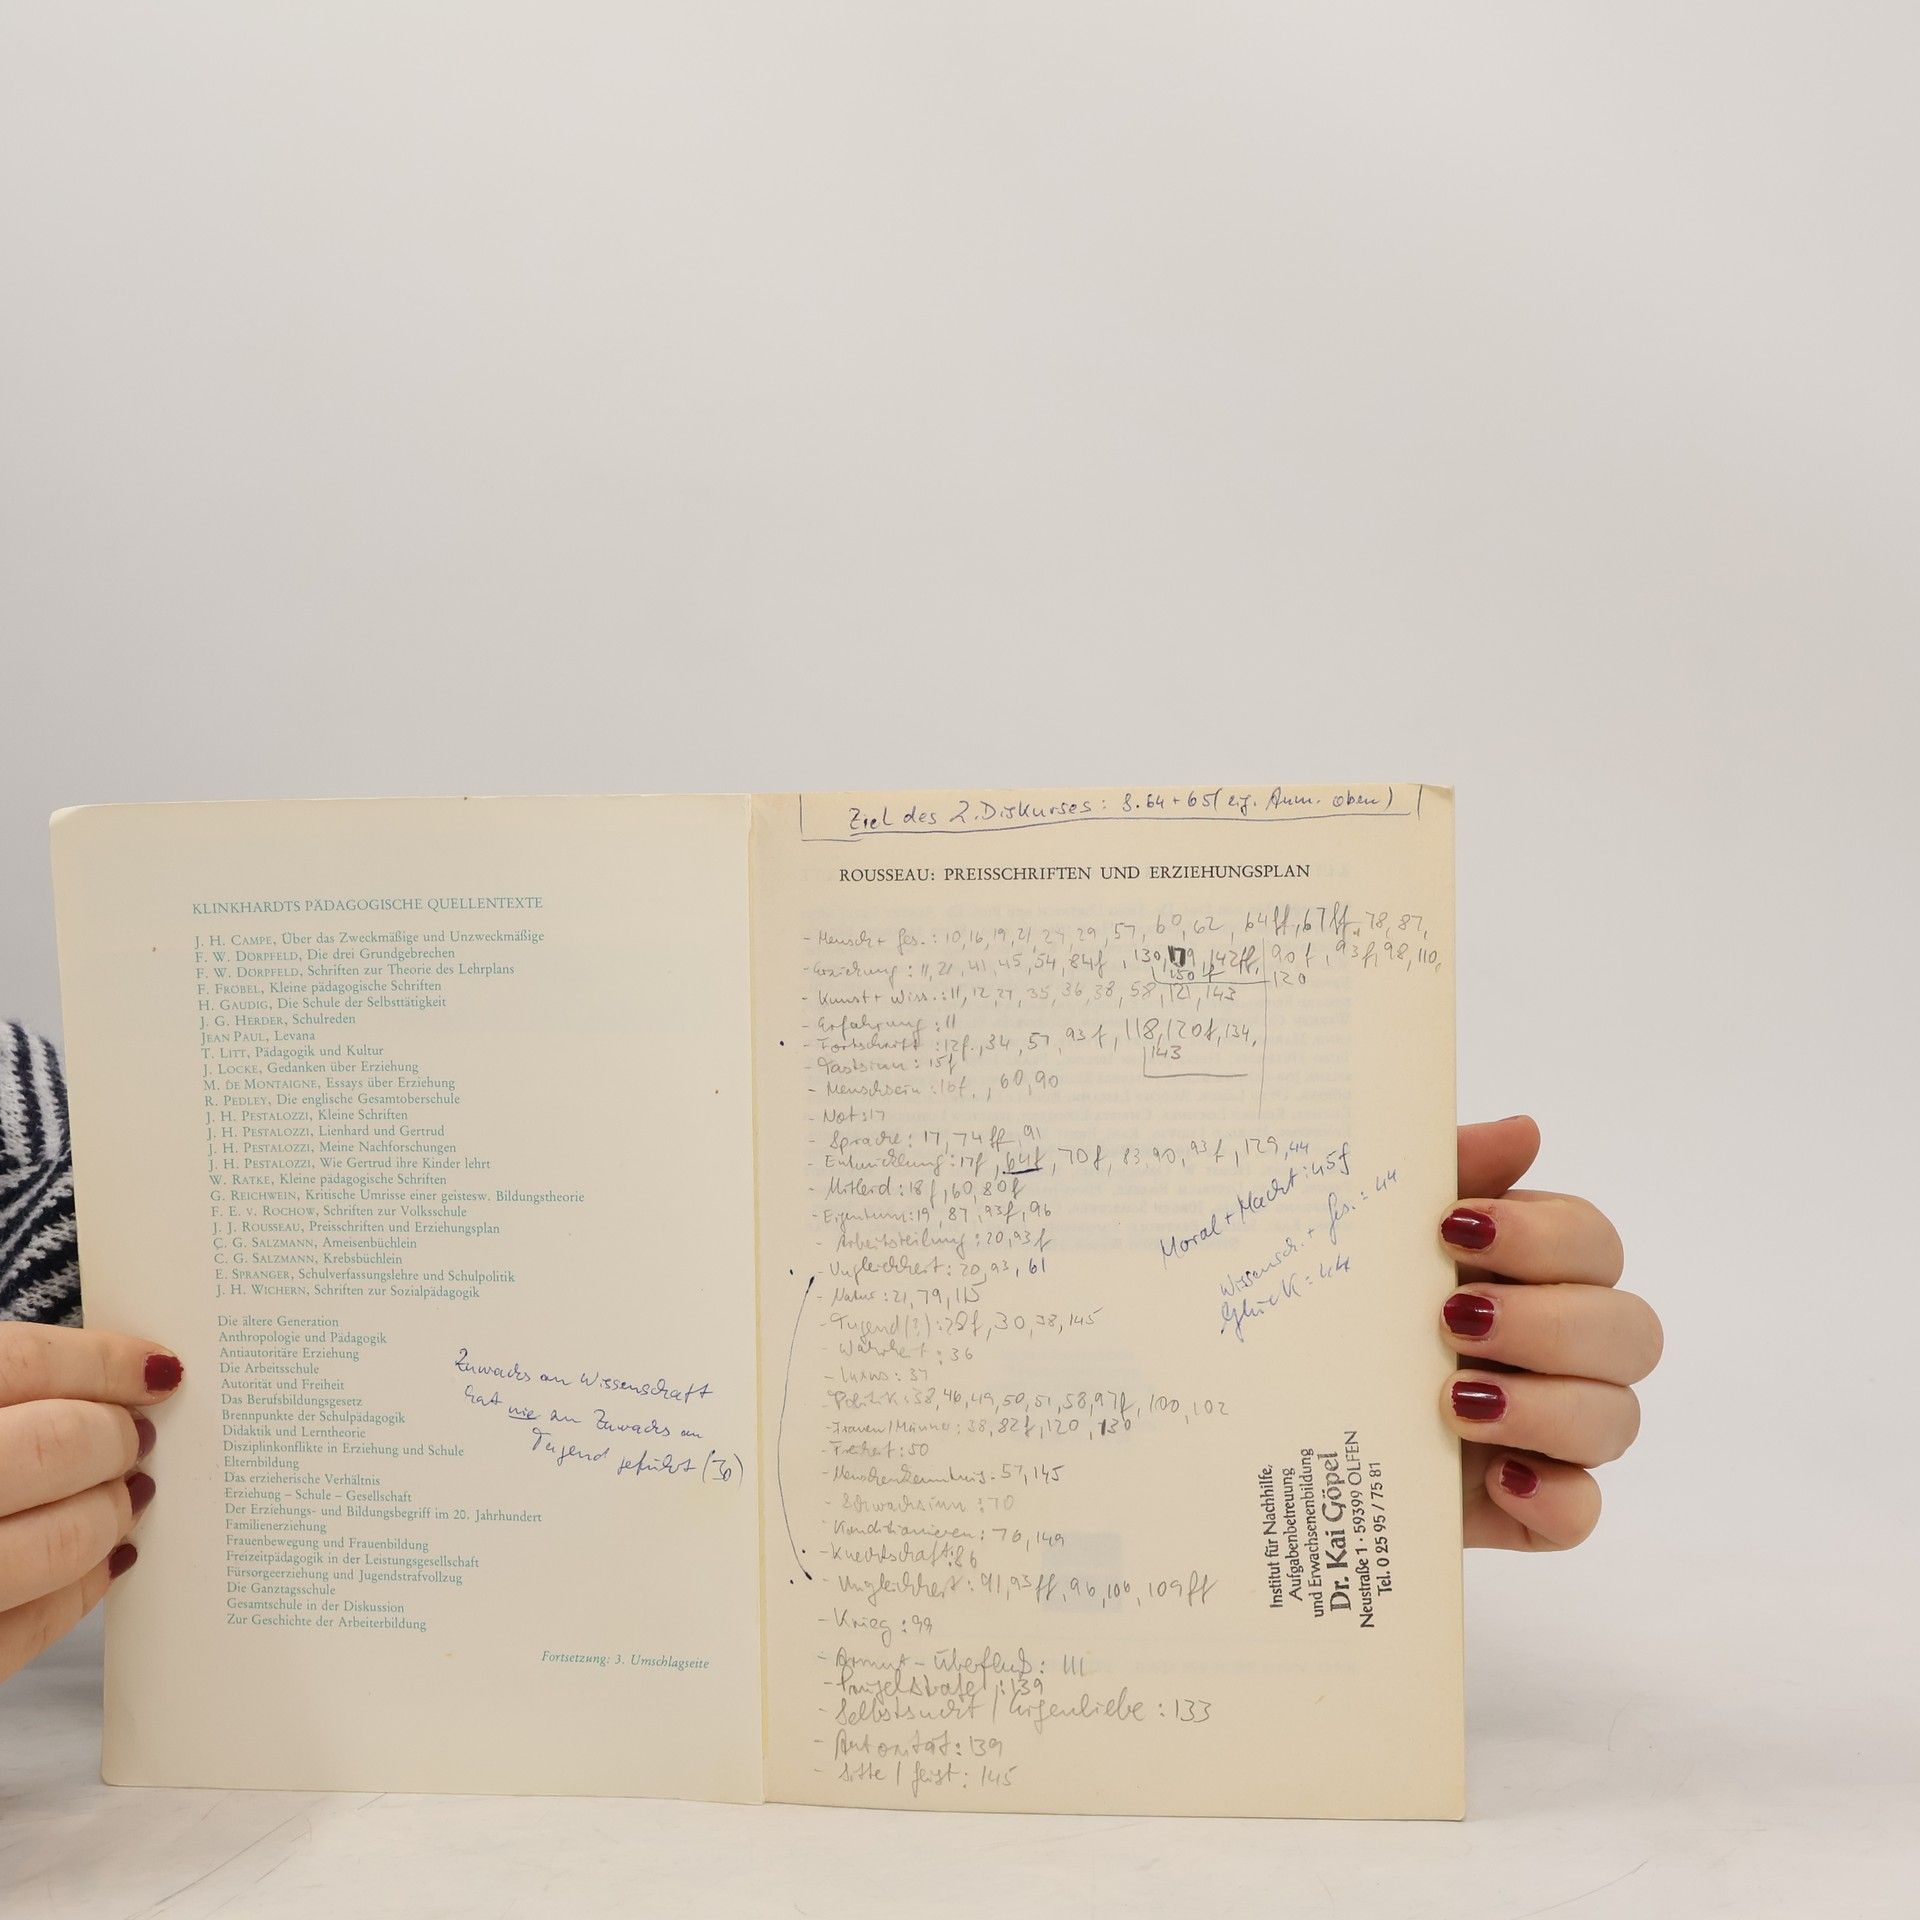 KLINKHARDTS PÄDAGOGISCHE QUELLENTEXTE
J. H. CAMPE, Über das Zweckmäßige und Unzweckmäßige
F. W. DÖRPFELD, Die drei Grundgebrechen
F. W. DÖRPFELD, Schriften zur Theorie des Lehrplans
F. FRÖBEL, Kleine pädagogische Schriften
H. GAUDIG, Die Schule der Selbsttätigkeit
J. G. HERDER, Schulreden
JEAN PAUL, Levana
T. LITT, Pädagogik und Kultur
J. LOCKE, Gedanken über Erziehung
M. DE MONTAIGNE, Essays über Erziehung
R. PEDLEY, Die englische Gesamtoberschule
J. H. PESTALOZZI, Kleine Schriften
J. H. PESTALOZZI, Lienhard und Gertrud
J. H. PESTALOZZI, Meine Nachforschungen
J. H. PESTALOZZI, Wie Gertrud ihre Kinder lehrt
W. RATKE, Kleine pädagogische Schriften
G. REICHWEIN, Kritische Umrisse einer geistesw. Bildungstheorie
F. E. V. ROCHOW, Schriften zur Volksschule
J. J. ROUSSEAU, Preisschriften und Erziehungsplan
C. G. SALZMANN, Ameisenbüchlein
C. G. SALZMANN, Krebsbüchlein
E. SPRANGER, Schulverfassungslehre und Schulpolitik
J. H. WICHERN, Schriften zur Sozialpädagogik
Die ältere Generation
Anthropologie und Pädagogik
Antiautoritäre Erziehung
Die Arbeitsschule
Autorität und Freiheit
Das Berufsbildungsgesetz
Brennpunkte der Schulpädagogik
Didaktik und Lerntheorie
Disziplinkonflikte in Erziehung und Schule
Elternbildung
Das erzieherische Verhältnis
Erziehung – Schule – Gesellschaft
Der Erziehungs- und Bildungsbegriff im 20. Jahrhundert
Familienerziehung
Frauenbewegung und Frauenbildung
Freizeitpädagogik in der Leistungsgesellschaft
Fürsorgeerziehung und Jugendstrafvollzug
Die Ganztagsschule
Gesamtschule in der Diskussion
Zur Geschichte der Arbeiterbildung
Fortsetzung: 3. Umschlagseite
Zuwachs an Wissenschaft
hat nie zu Zuwachs an
Tugend geführt (30)
Ziel des 2. Diskurses: S. 64 + 65 (eig. Anm. oben)
ROUSSEAU: PREISSCHRIFTEN UND ERZIEHUNGSPLAN
- Mensch + Ges.: 10, 16, 19, 21, 27, 29, 57, 60, 62, 64ff, 67ff, 78, 87,
90f, 93f, 98, 110,
120
- Erziehung: 11, 21, 41, 45, 54, 84f, 130, 142ff,
150f
- Kunst + Wiss.: 11, 12, 27, 35, 36, 38, 58, 121, 143
- Erfahrung: 11
- Fortschritt: 12f., 34, 57, 93f, 118, 120f, 134,
143
- Tastsinn: 15f
- Menschsein: 16f., 60, 90
- Not: 17
- Sprache: 17, 74ff, 91
- Entwicklung: 17f, 64f, 70f, 83, 90, 93f, 129, 44
- Mitleid: 18f, 60, 80f
- Eigentum: 19, 87, 93f, 96
- Arbeitsteilung: 20, 93f
- Ungleichheit: 20, 93, 61
- Natur: 21, 79, 115
- Tugend (?): 28f, 30, 38, 145
- Wahrheit: 36
- Luxus: 37
- Politik: 38, 46, 49, 50, 51, 58, 97f, 100, 102
- Frauen/Männer: 38, 82f, 120, 130
- Freiheit: 50
- Menschenkenntnis: 57, 145
- Schwachsinn: 70
- Konditionieren: 76, 149
- Knechtschaft: 86
- Ungleichheit: 91, 93ff, 96, 106, 109ff
- Krieg: 99
- Armut - Überfluß: 111
- Prügelstrafe: 139
- Selbstsucht / Eigenliebe: 133
- Autorität: 139
- Sitte / Geist: 145
Moral + Macht: 45f
Wissensch. + Ges.: 44
Glück: 44
Institut für Nachhilfe,
Aufgabenbetreuung
und Erwachsenenbildung
Dr. Kai Göpel
Neustraße 1 · 59399 OLFEN
Tel. 0 25 95 / 75 81